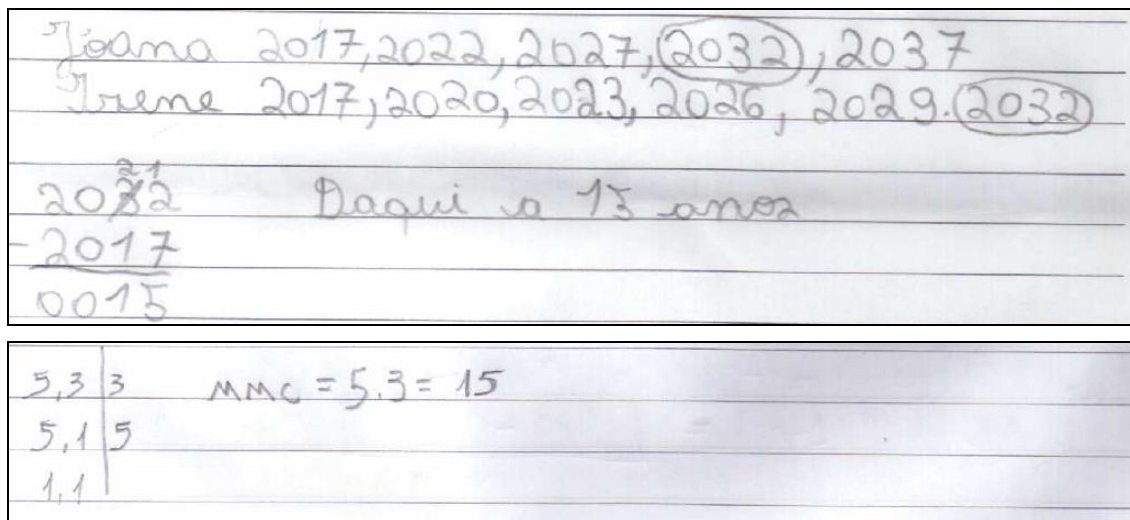 Joana 2017, 2022, 2027, 2032, 2037
Irene 2017, 2020, 2023, 2026, 2029. 2032
21
2032 Daqui a 15 anos
- 2017
0015
5,3 | 3 MMC = 5.3 = 15
5,1 | 5
1,1